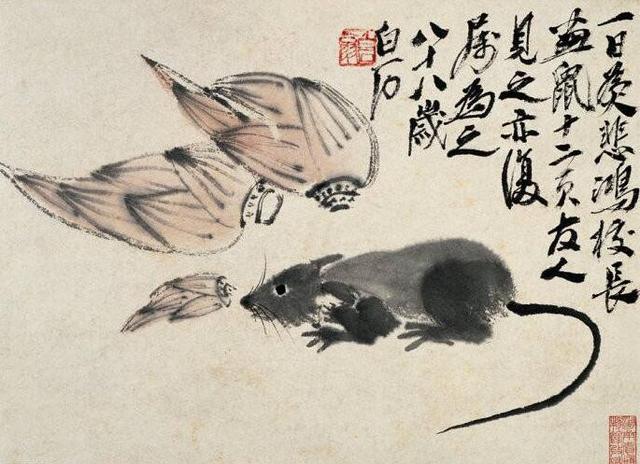 一日为悲鸿校長
畫鼠十二页友人
見之亦復
屬為之
八十八歲
白石